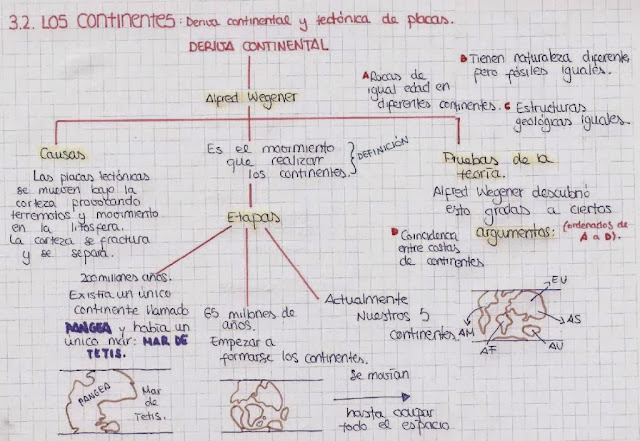 3.2. LOS CONTINENTES: Deriva continental y tectónica de placas.
DERIVA CONTINENTAL
Alfred Wegener
A Rocas de
igual edad en
diferentes continentes.
B Tienen naturaleza diferente,
pero fósiles iguales.
C Estructuras
geológicas iguales.
Causas
Las placas tectónicas
se mueven bajo la
corteza provocando
terremotos y movimiento
en la litosfera.
La corteza se fractura
y se separa.
Es el movimiento
que realizan
los continentes.
DEFINICIÓN
Pruebas de la
teoría.
Alfred Wegener descubrió
esto gracias a ciertos
argumentos: (ordenados de
A a D).
D Coincidencia
entre costas
de continentes
Etapas
200 millones años.
Existía un único
continente llamado
PANGEA y había un
único mar: MAR DE
TETIS.
65 millones de
años.
Empezar a
formarse los continentes.
Actualmente
Nuestros 5
continentes.
EU
AS
AM
AF
AU
PANGEA
Mar
de
Tetis.
Se movían
hasta ocupar
todo el espacio